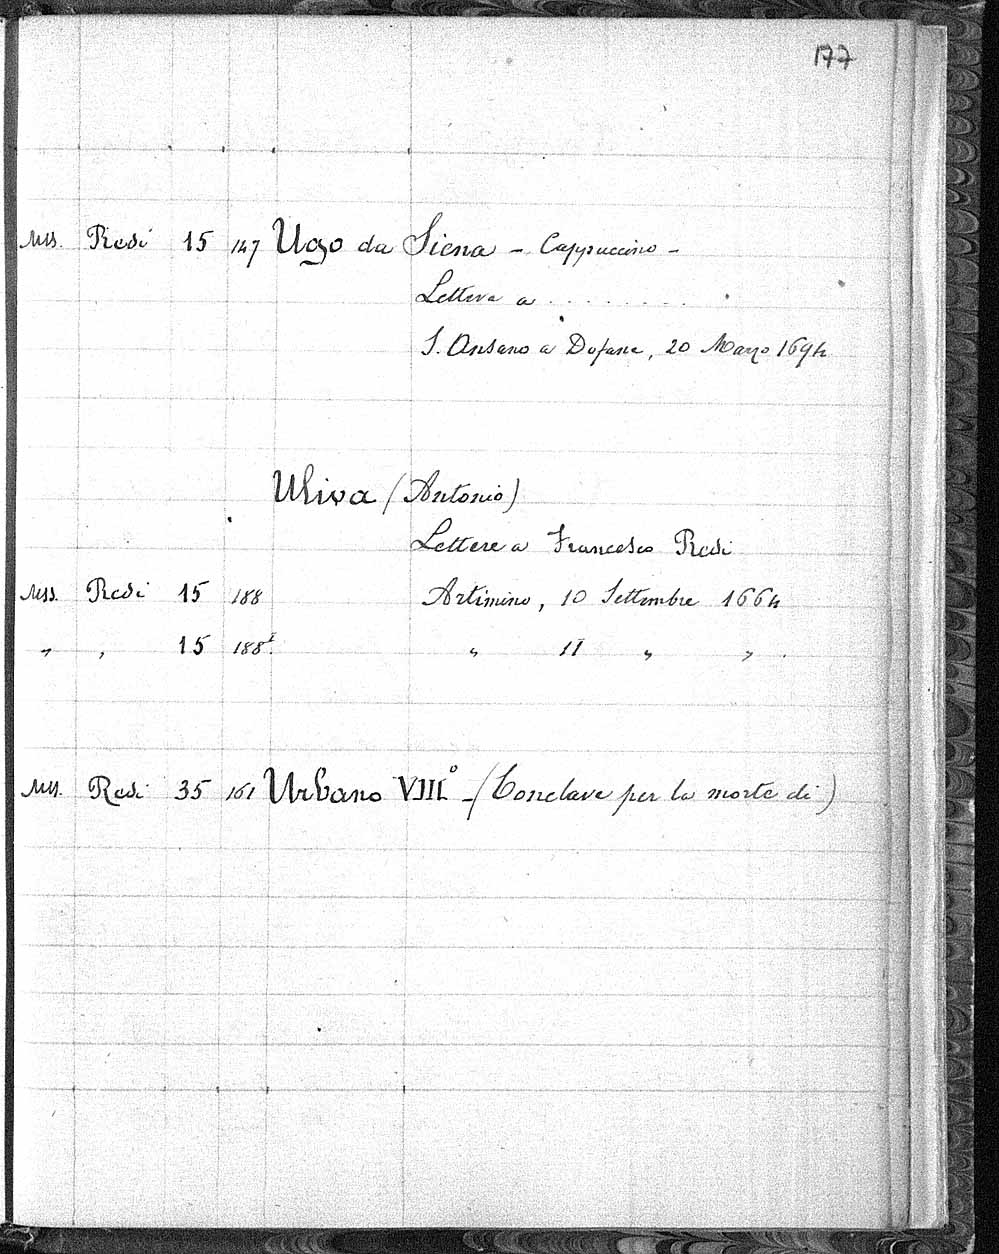 177
Mss. Redi 15 147 Ugo da Siena - Cappuccino -
Lettera a . . . . . . . . .
S. Ansano a Dofane, 20 Marzo 1694
Uliva (Antonio)
Lettere a Francesco Redi
Mss. Redi 15 188 Artimino, 10 Settembre 1664
" " 15 188I. " 11 " " .
Mss. Redi 35 161 Urbano VIIIº - (Conclave per la morte di)